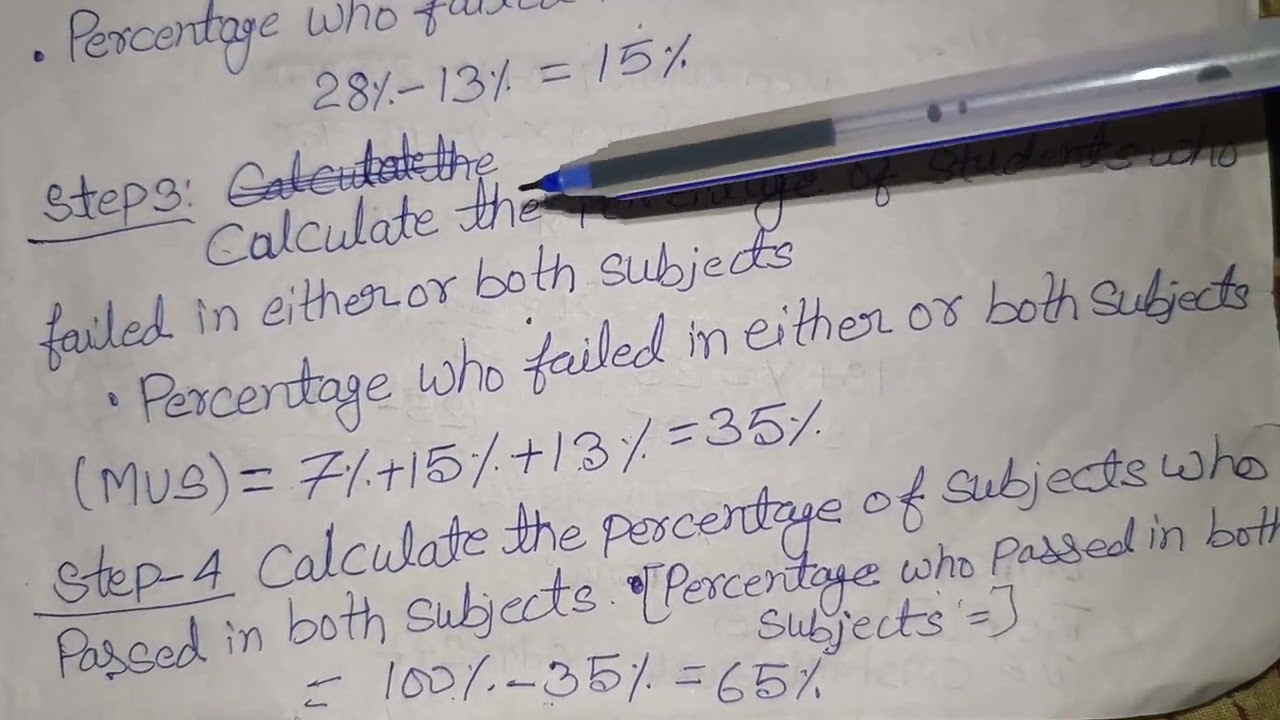 • Percentage who failed
28% - 13% = 15%
Step 3: Calculate the
Calculate the of students who
failed in either or both subjects
• Percentage who failed in either or both subjects
(MUS) = 7% + 15% + 13% = 35%
Step-4 Calculate the percentage of subjects who
Passed in both subjects. •[Percentage who Passed in both
subjects =]
= 100% - 35% = 65%